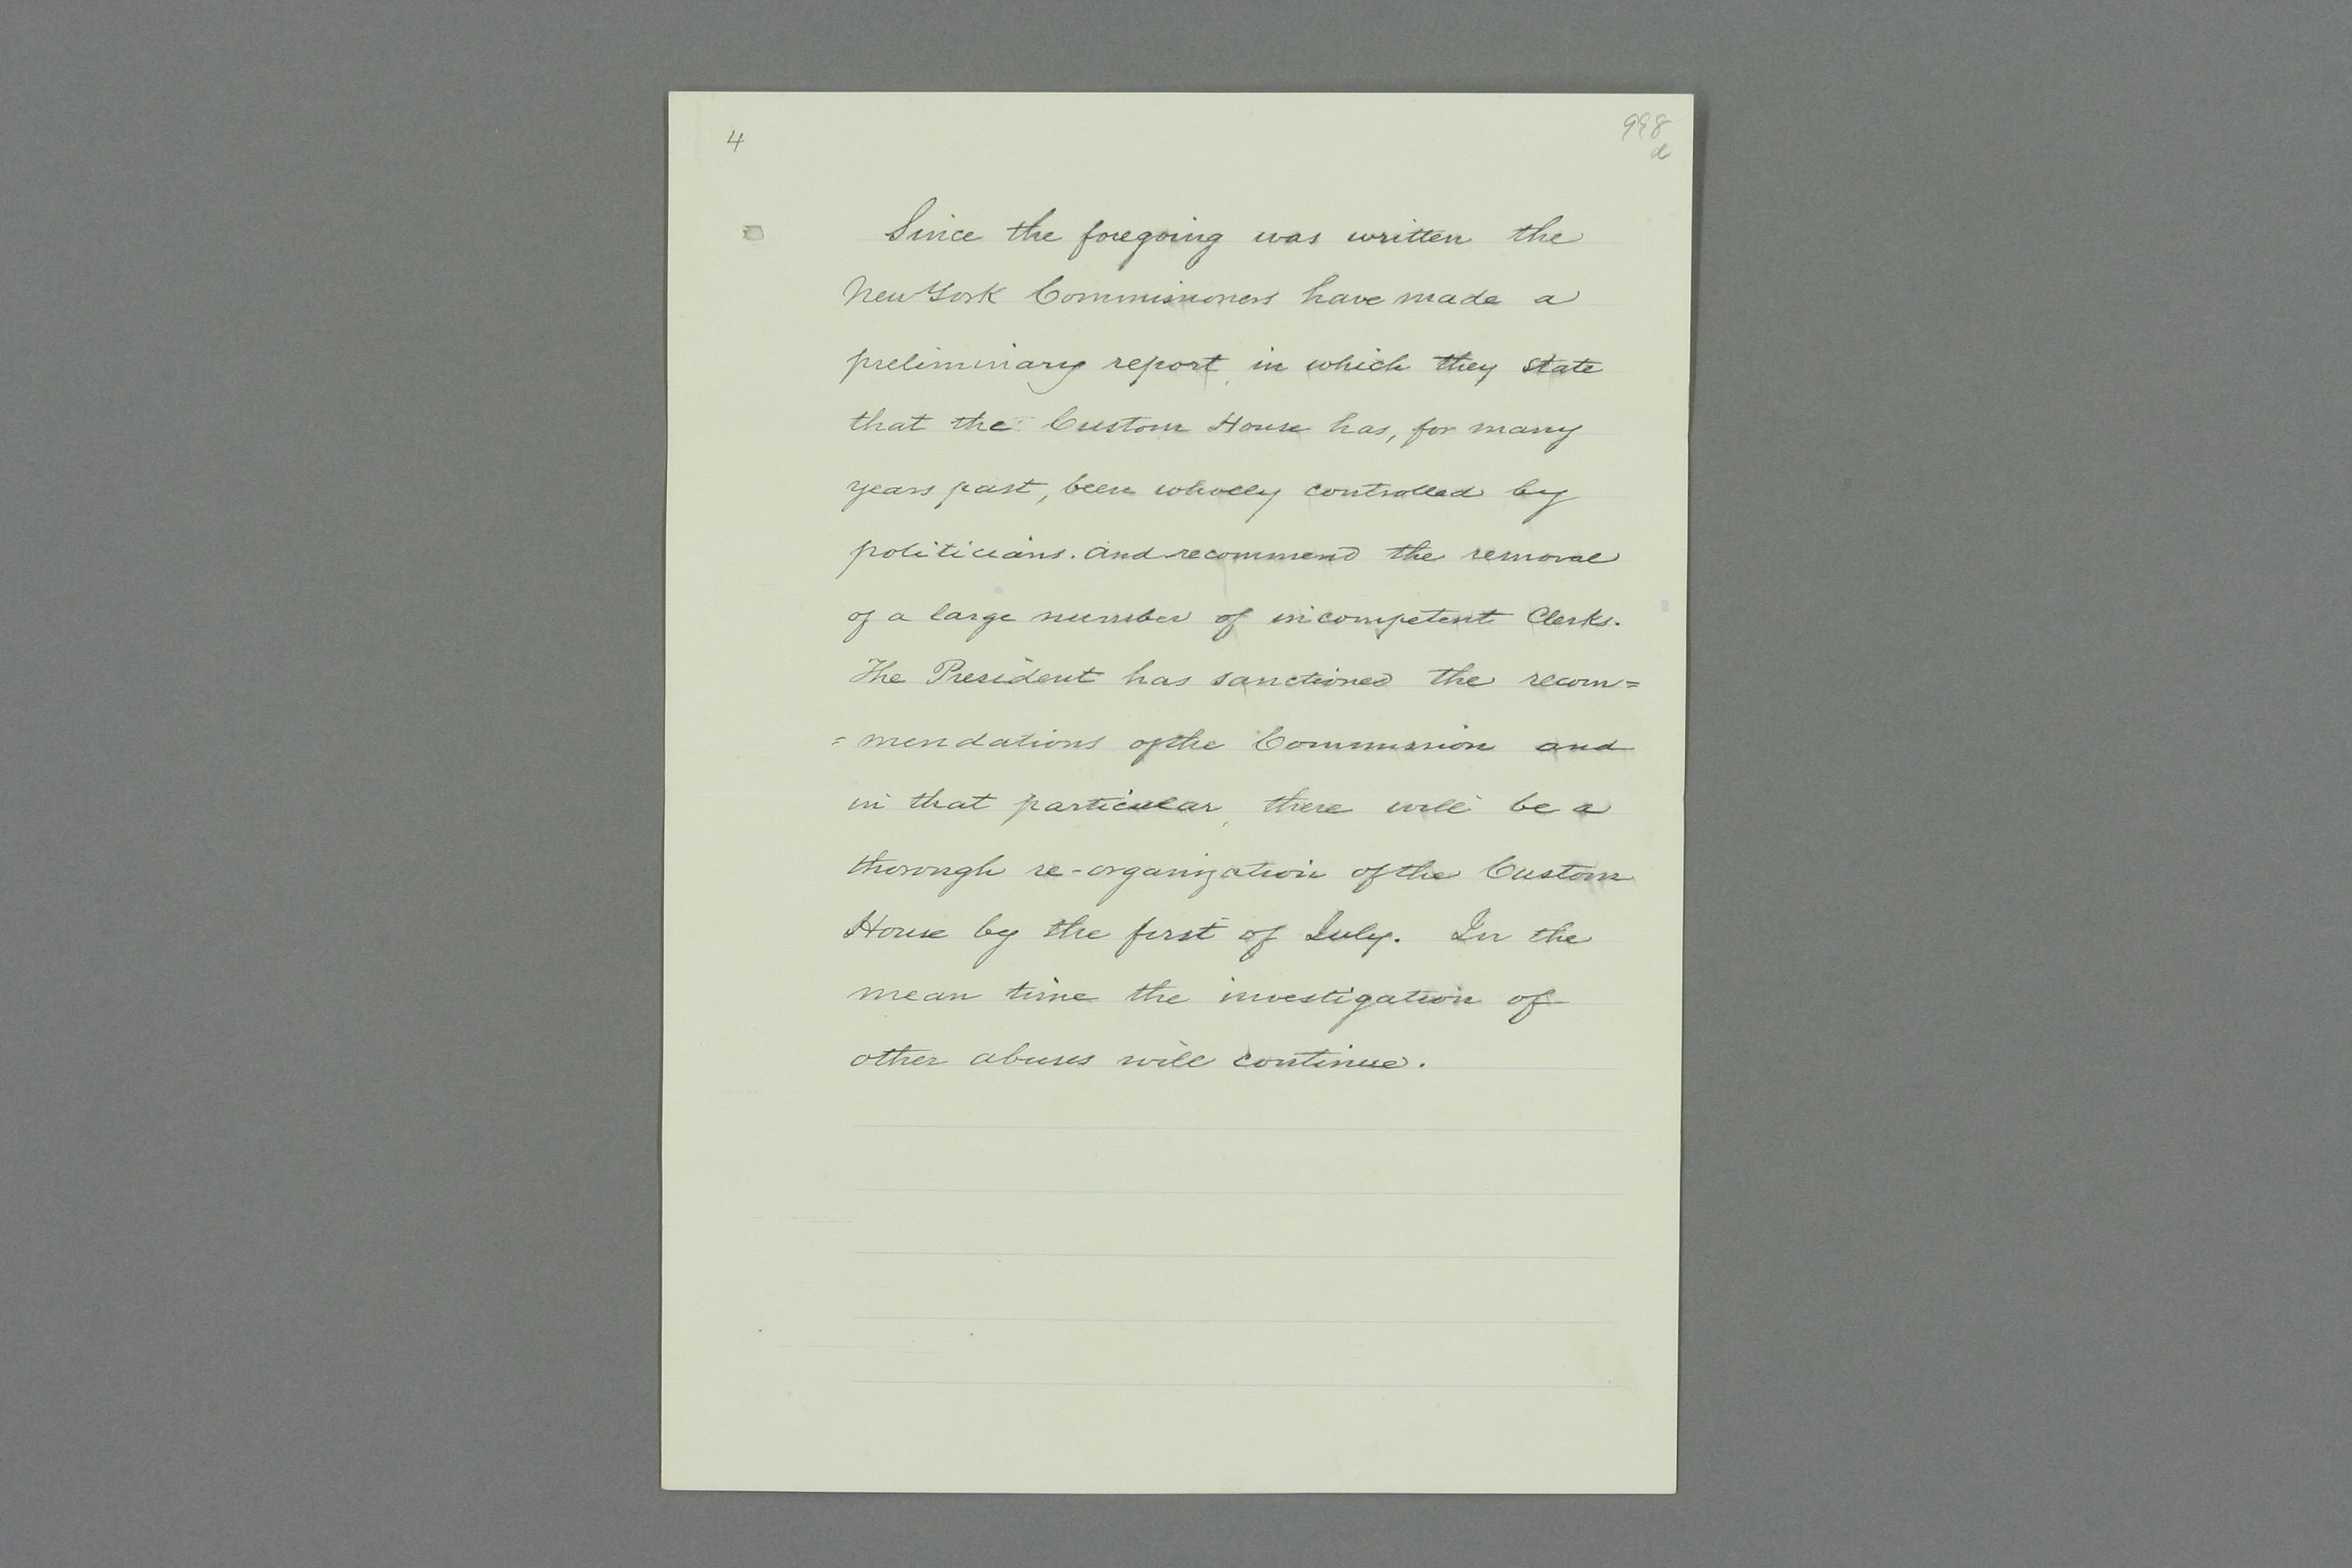 4
998
d
Since the foregoing was written the
New York Commissioners have made a
preliminary report, in which they state
that the Custom House has, for many
years past, been wholly controlled by
politicians. And recommend the removal
of a large number of incompetent Clerks.
The President has sanctioned the recom=
=mendations of the Commission and
in that particular, there will be a
thorough re-organization of the Custom
House by the first of July. In the
mean time the investigation of
other abuses will continue.